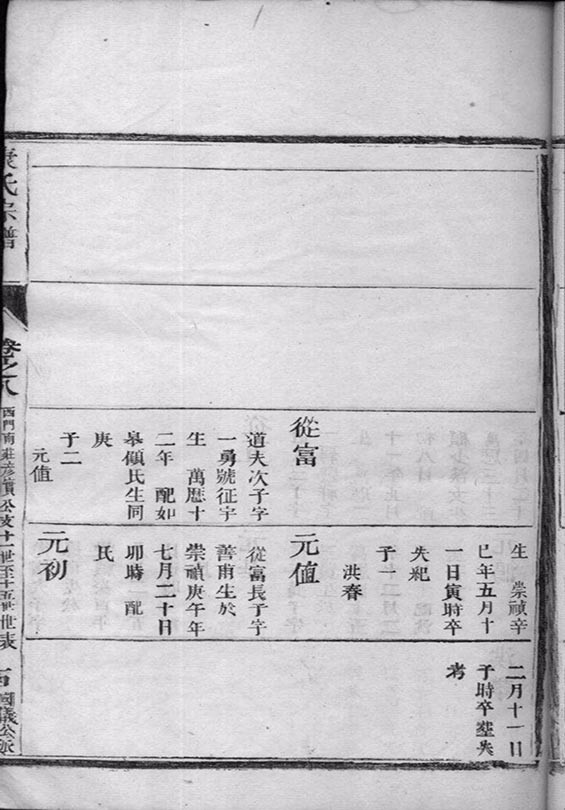 從富
道夫次子字
一勇號征宇
生 萬曆十
二年 配如
皋傾氏生同
庚
子二
元值
生 崇禎辛
巳年五月十
一日寅時卒
失紀
子一
洪春
元值
從富長子字
善甫生於
崇禎庚午年
七月二十日
卯時 配
氏
元初
二月十一日
子時卒塟失
考
氏宗譜
卷之八
西門南莊彥質公支十一世至十五世世表
國儀公派